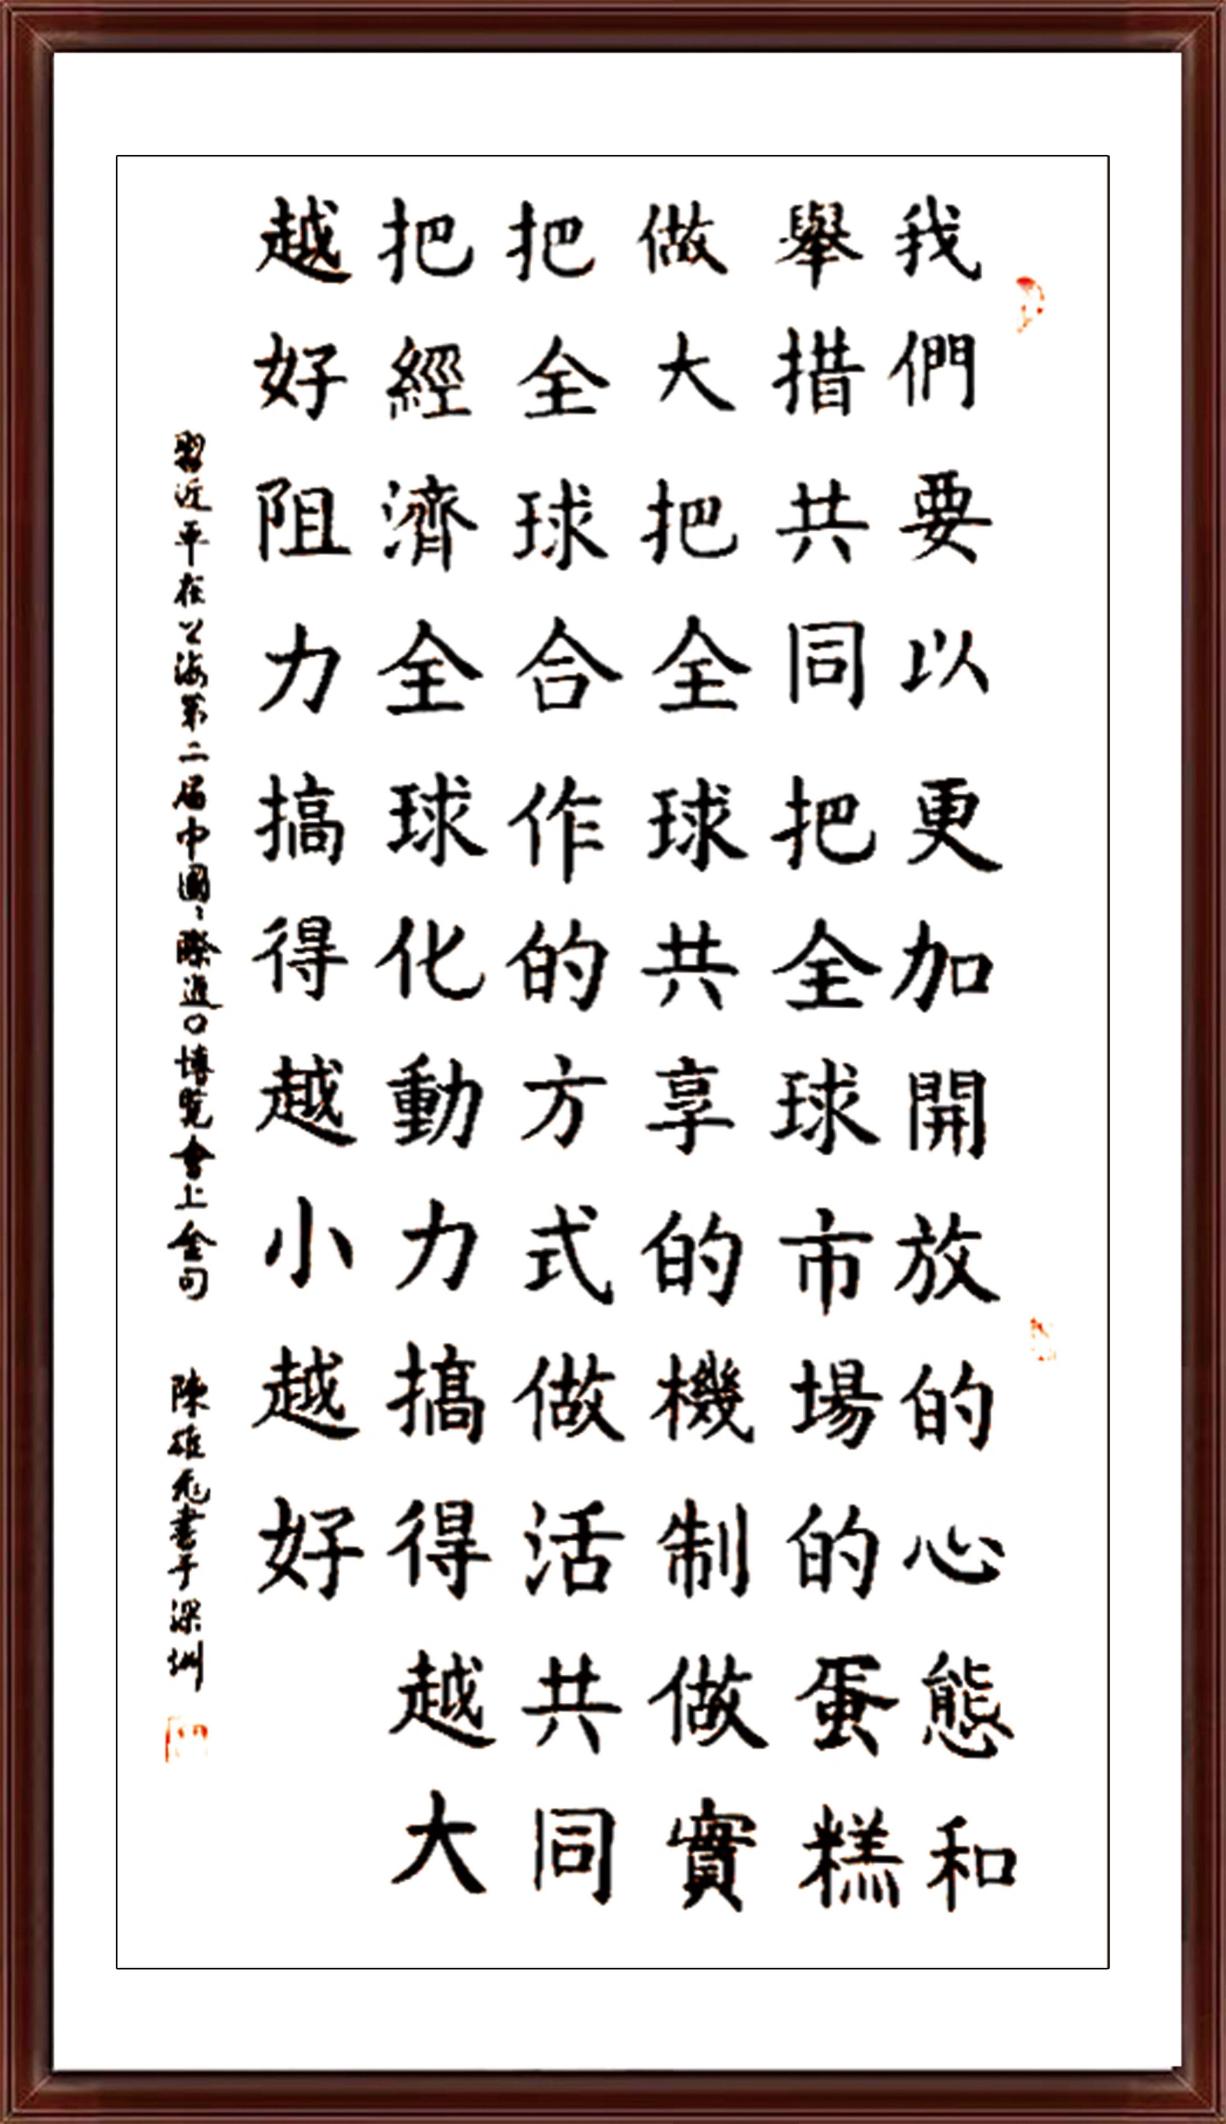 我們要以更加開放的心態和
舉措共同把全球市場的蛋糕
做大把全球共享的機制做實
把全球合作的方式做活共同
把經濟全球化動力搞得越大
越好阻力搞得越小越好
習近平在上海第二届中國〻際進口博覽會上金句
陳雄書于深圳